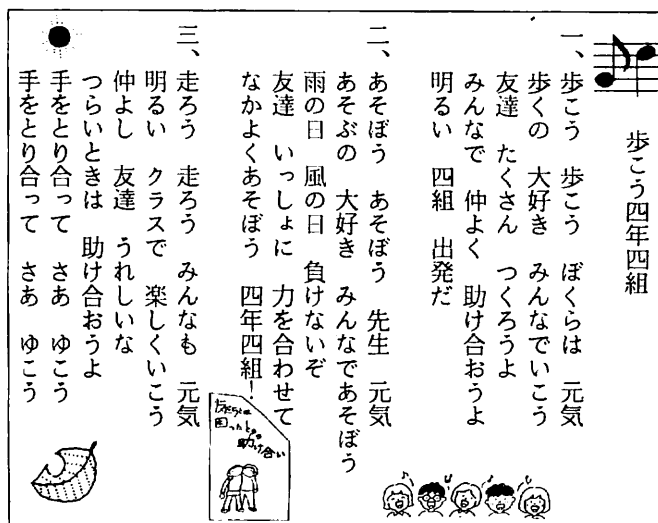 歩こう四年四組
一、歩こう 歩こう ぼくらは 元気
歩くの 大好き みんなでいこう
友達 たくさん つくろうよ
みんなで 仲よく 助け合おうよ
明るい 四組 出発だ
二、あそぼう あそぼう 先生 元気
あそぶの 大好き みんなであそぼう
雨の日 風の日 負けないぞ
友達 いっしょに 力を合わせて
なかよくあそぼう 四年四組！
三、走ろう 走ろう みんなも 元気
明るい クラスで 楽しくいこう
仲よし 友達 うれしいな
つらいときは 助け合おうよ
手をとり合って さあ ゆこう
手をとり合って さあ ゆこう
友だちは
困ったとき
助け合い